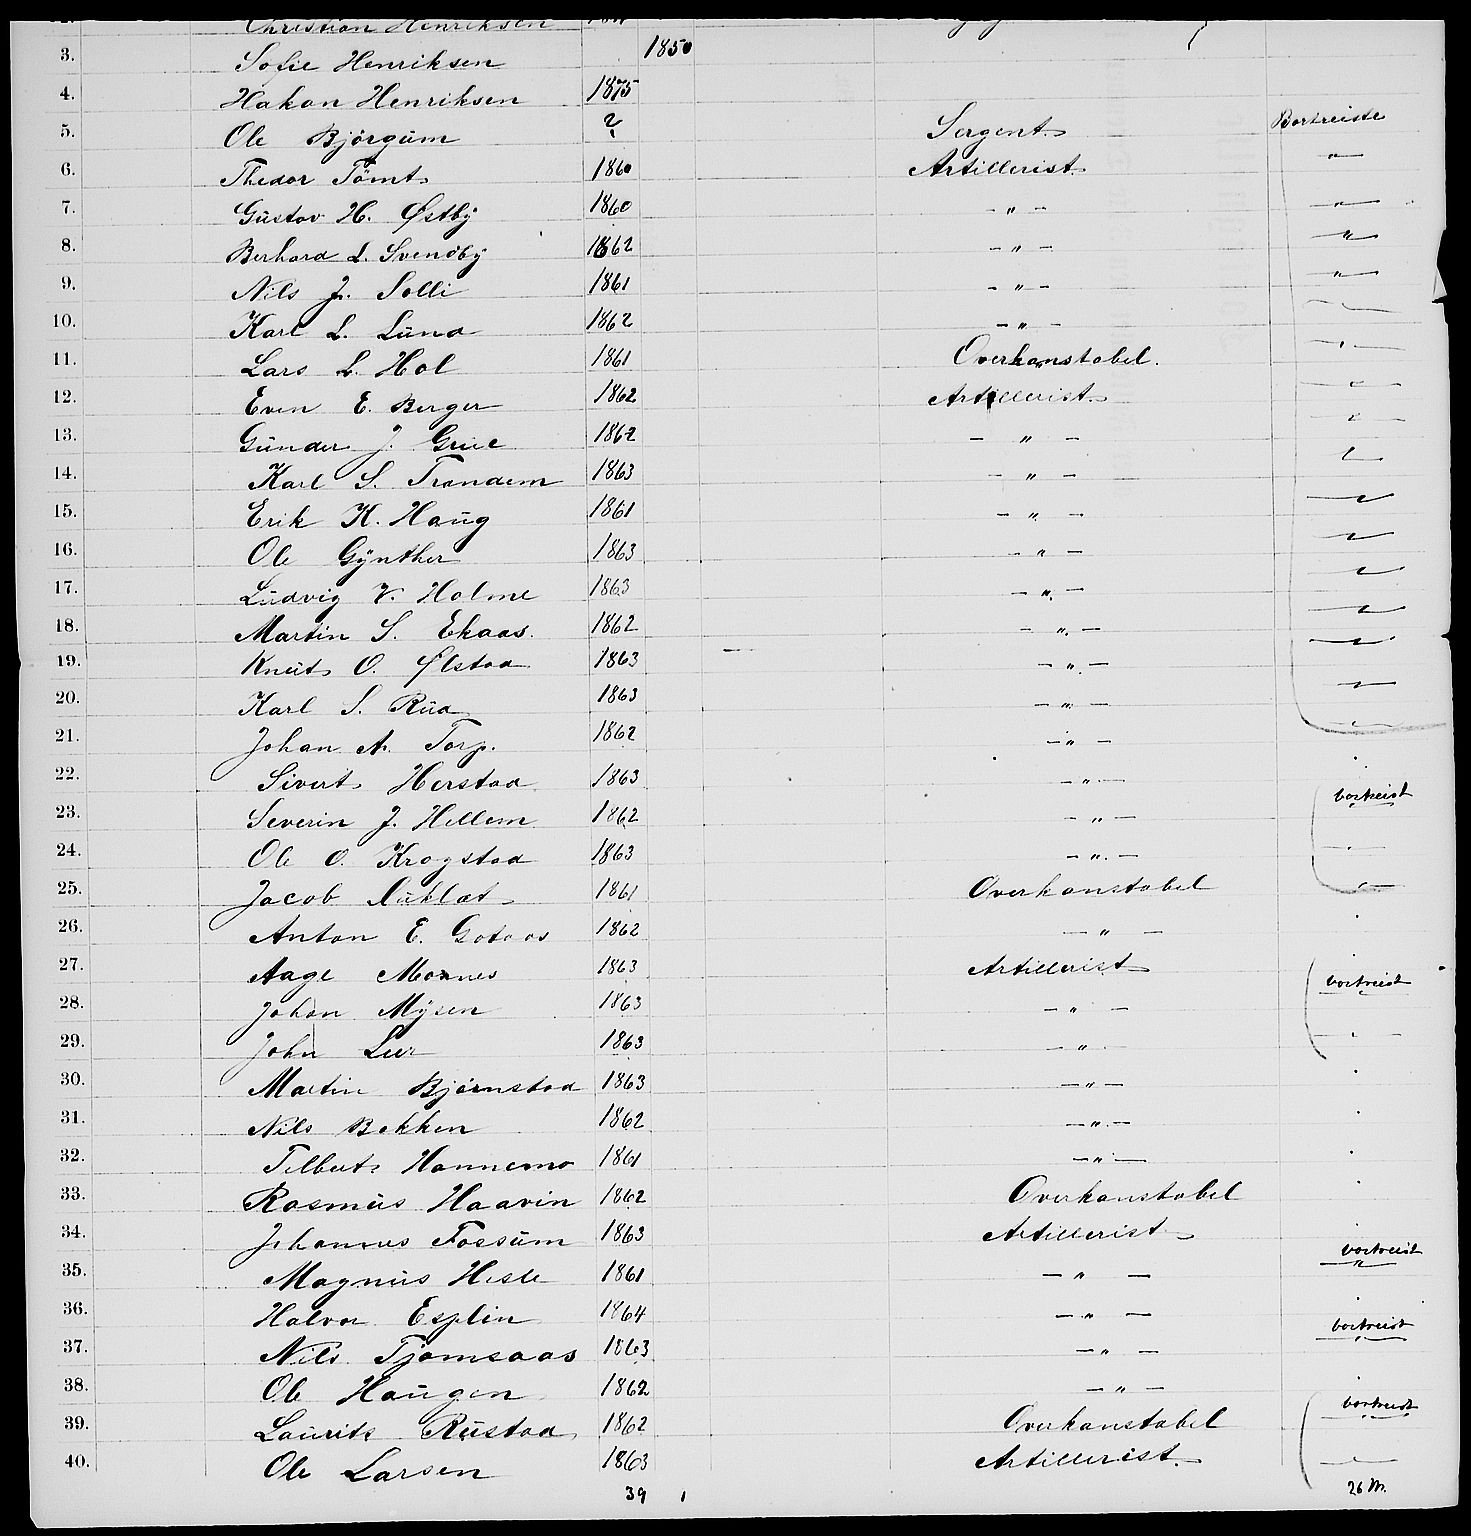 Christian Henriksen
3. Sofie Henriksen 1850
4. Hakon Henriksen 1875
5. Ole Bjørgum ? Sergent Bortreiste
6. Thedor Tömt 1860 Artillerist "
7. Gustav H. Østby 1860 - " - "
8. Berhard L. Svendby 1862 - " - "
9. Nils J. Solli 1861 - " - "
10. Karl L. Lund 1862 - " -
11. Lars L. Hol 1861 Overkonstabel.
12. Even E. Berger 1862 Artillerist "
13. Gunder J. Grue 1862 - " - "
14. Karl S. Trondem 1863 - " - "
15. Erik K. Haug 1861 - " - "
16. Ole Gynther 1863 - " - "
17. Ludvig V. Holme 1863 - " - "
18. Martin S. Ekaas. 1862 - " - "
19. Knut O. Ølstad 1863 - " - "
20. Karl S. Rud 1863 - " - "
21. Johan A. Torp. 1862 - " - "
22. Sivert Herstad 1863 - " -
23. Severin J. Hellem 1862 - " - bortreist
24. Ole O. Krogstad 1863 - " - "
25. Jacob 1861 Overkonstabel "
26. Anton E. Gotaas 1862 - " -
27. Aage Moxnes 1863 Artillerist
28. Johan Mysen 1863 - " - bortreist
29. John Lur 1863 - " - "
30. Martin Bjørnstad 1863 - " -
31. Nils Bekken 1862 - " -
32. Telbert Hannemo 1861 - " -
33. Rasmus Haavin 1862 Overkonstabel
34. Johannes Fossum 1863 Artillerist
35. Magnus Hesle 1861 - " - bortreist
36. Halvor Esplin 1864 - " -
37. Nils Tjomsaas 1863 - " - bortreist
38. Ole Haugen 1862 - " -
39. Laurits Rustad 1862 Overkonstabel bortreist
40. Ole Larsen 1863 Artillerist. "
39 1 26 M.